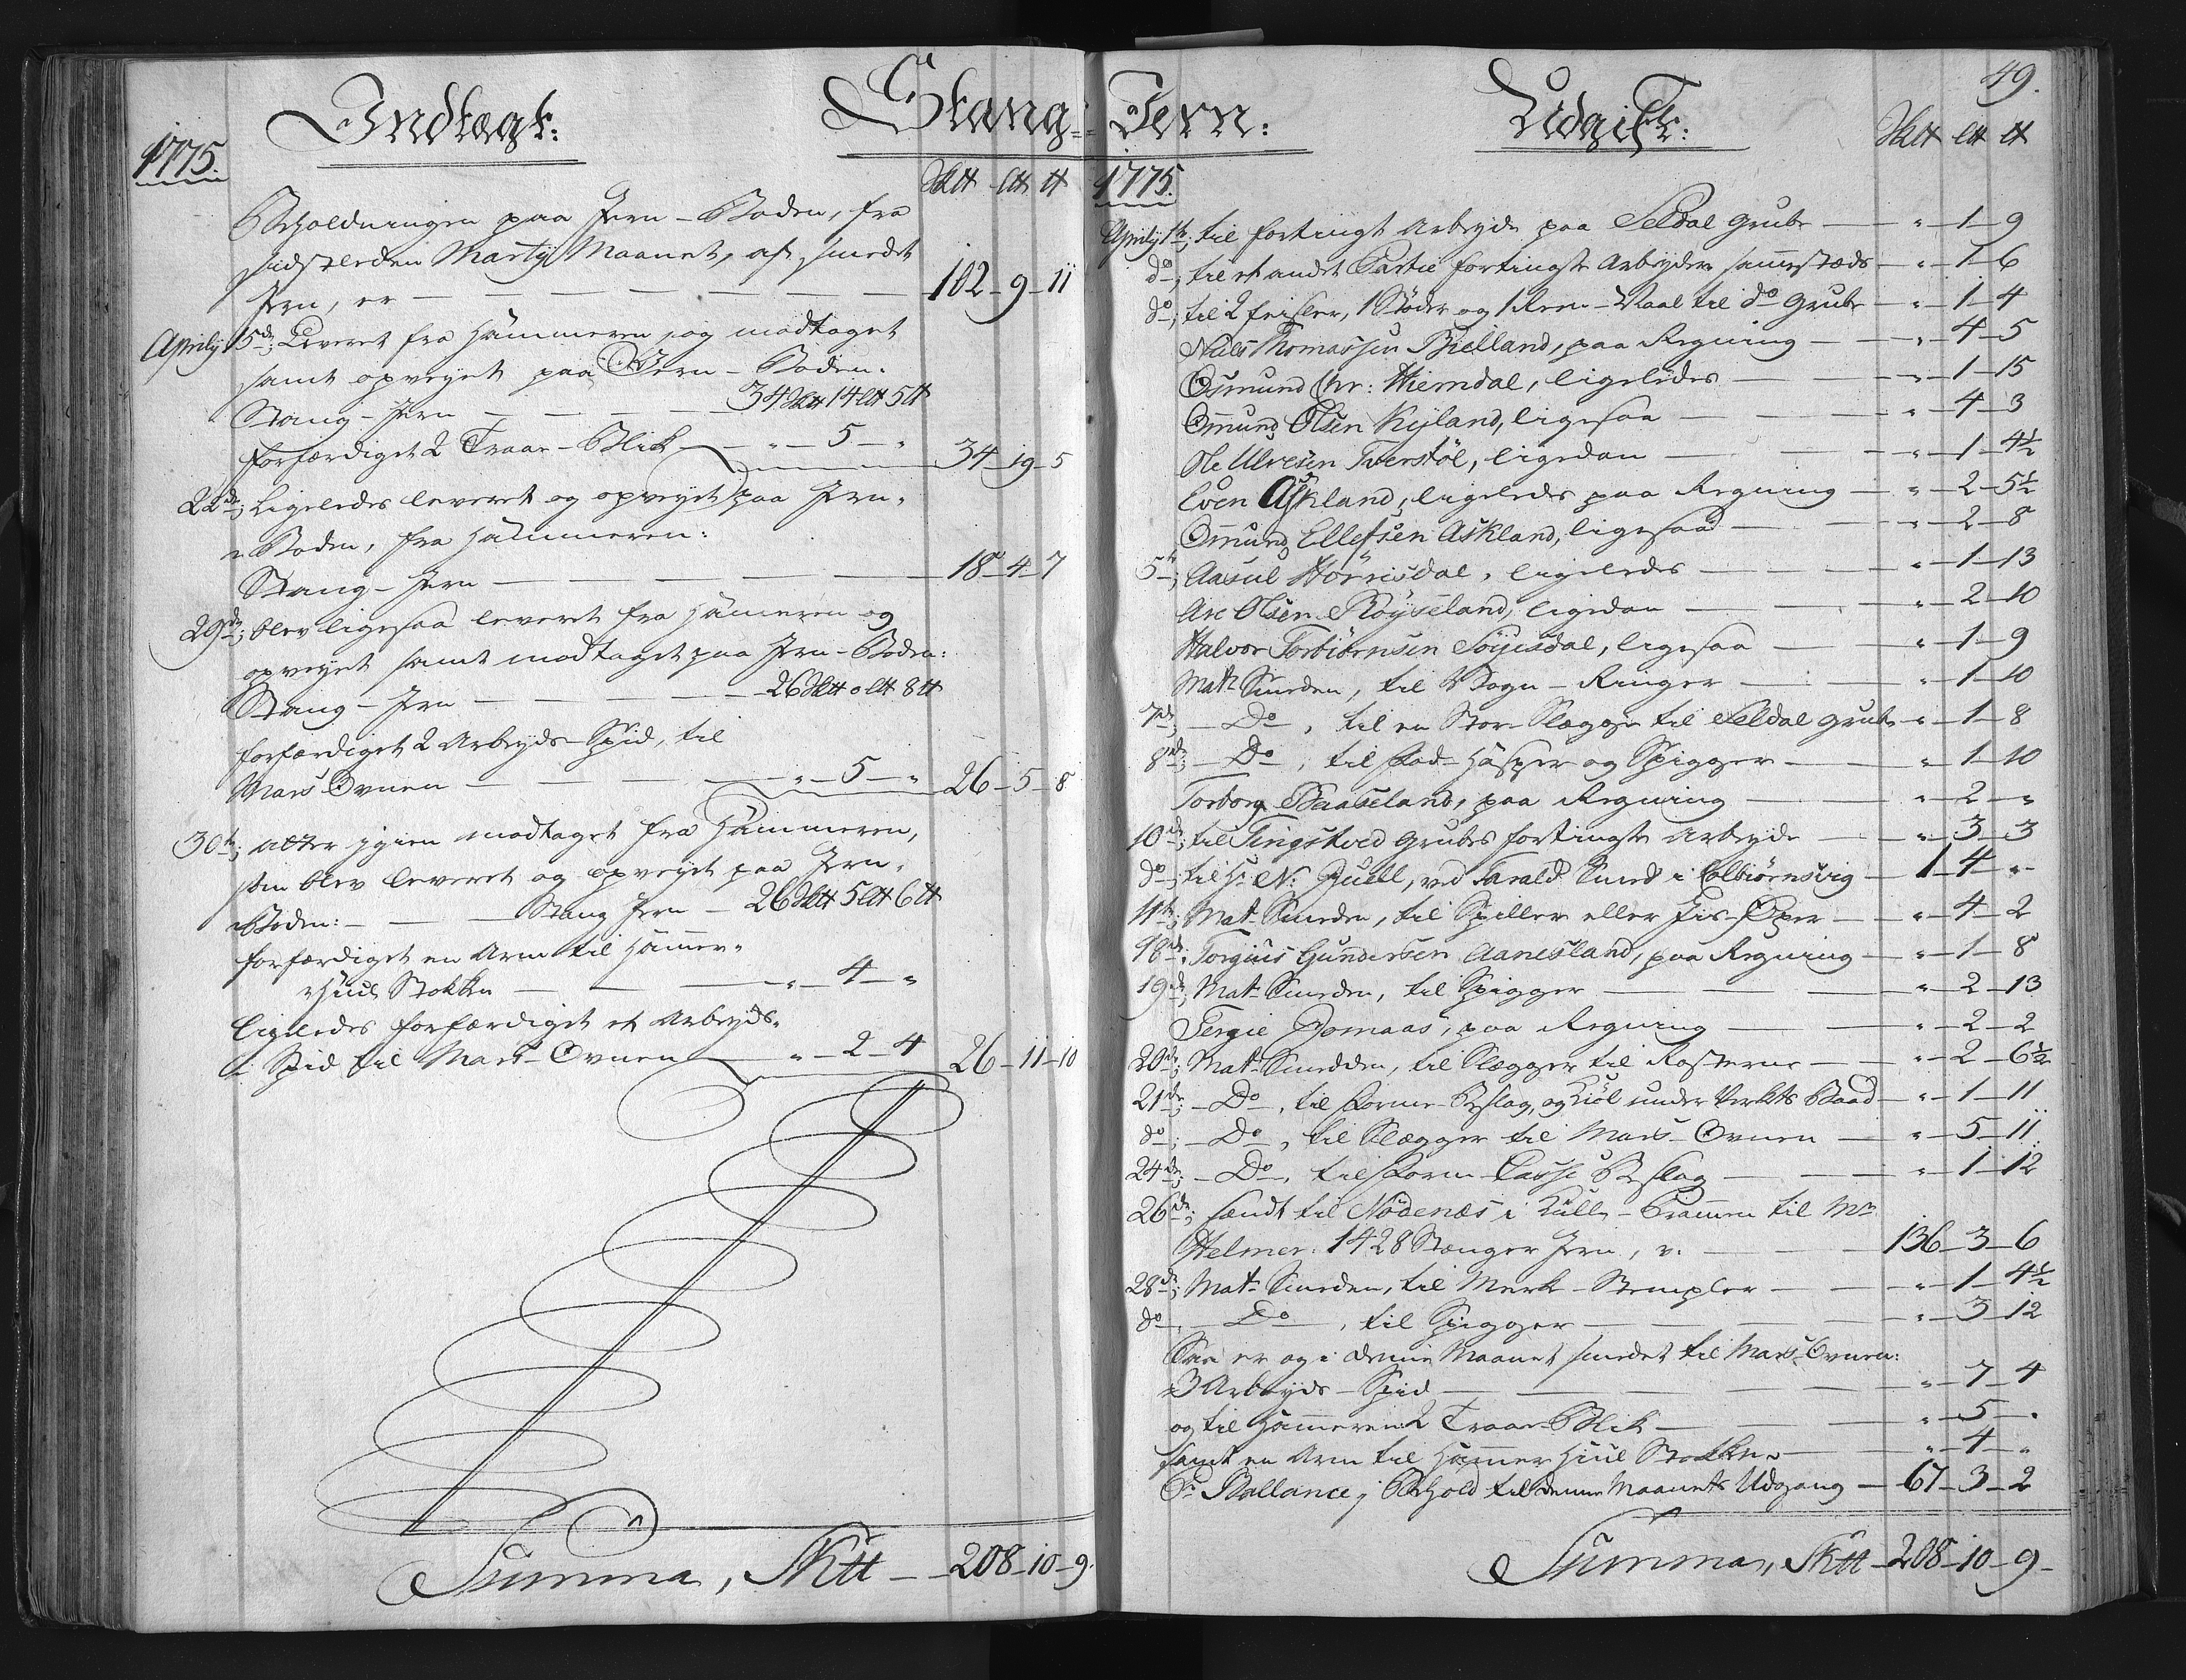 Indtægt:
Stang-
1775.
Sktt ltt tt
Beholdningen paa Jern-Boden, fra
sidstleden Martij Maanet, af smedt
Jern, er — 102-9-11
Aprily 5de; Leveret fra Hammeren, og modtaget
samt opveyet paa Jern-Boden.
Stang-Jern — 34 Sktt 14 ltt 5 tt
forfærdiget 2 Traae-Blik — " — 5 — " 34-19-5
22de; Ligeledes leveret og opveyet paa Jern-
Boden, fra Hammeren:
Stang-Jern — 18-4-7
29de; blev ligesaa leveret fra Hammeren og
opveyet samt modtaget paa Jern-Boden:
Stang-Jern — 26 Sktt 0 ltt 8 tt
forfærdiget 2 Arbeyds-Spid, til
Mars Ovnen — " — 5 — " 26-5-8
30te; atter igien modtaget fra Hammeren,
som blev leveret og opveyet paa Jern-
Boden: — Stang Jern — 26 Sktt 5 ltt 6 tt
forfærdiget en Arm til Hammer-
Hiuul Stokken — " — 4 — "
Ligeledes forfærdiget et Arbeyds-
Spid til Mars-Ovnen — " — 2-4 26-11-10
Summa, Sktt — 208-10-9.
Jern:
Udgift:
49.
Sktt ltt tt
1775.
Aprily 1te; til fortingt Arbeyde paa Seldal Grube — " — 1-9
do; til et andet Partie fortingte Arbeyder sammestæds — " — 1-6
do; til 2 feisler, 1 Støder og 1 Rense-Naal til do Grube — " — 1-4
Niels Thomassen Bielland, paa Regning — " — 4-5
Osmund Chr: Hierndal, ligeledes — " — 1-15
Omund Olsen Kyland, ligesaa — " — 4-3
Ole Ulvesen Tverstøl, ligedan — " — 1-4½
Even Askland, ligeledes paa Regning — " — 2-5½
Omund Ellefsen Askland, ligesaa — " — 2-8
5te; Aasul Hørrisdal, ligeledes — " — 1-13
Are Olsen Røyseland, ligedan — " — 2-10
Halvor Torbiørnsen Søyisdal, ligesaa — " — 1-9
Mats Smeden, til Vogn-Ringer — " — 1-10
7de; — Do —, til en Stor-Slægge til Seldal Grube — " — 1-8
8de; — Do —, til Haspper og Spigger — " — 1-10
Torborg Baaseland, paa Regning — " — 2 — "
10de; til Tingstved Grubes fortingte Arbeyde — " — 3-3
do; til Hr N: Juell, ved Tarald Smed i Colbiørnsvig — 1-4 — "
11te; Mat. Smeden, til Spiller eller Jis-Øxer — " — 4-2
18de; Torgius Gundersen Aanesland, paa Regning — " — 1-8
19de; Mat. Smeden, til Spigger — " — 2-13
Tergie Jomaas, paa Regning — " — 2-2
20de; Mat. Smedden, til Slægger til Rosterne — " — 2-6½
21de; — Do —, til Forme-Beslag, og Kiøl under Verkets Baad — " — 1-11
do; — Do —, til Slægger til Mars-Ovnen — " — 5-11
24de; — Do —, til Form Casse Beslag — " — 1-12
26de; sendt til Nødenæs i Kull-Prammen til Mr
Helmer: 1428 Stænger Jern, v. — 136-3-6
28de; Mat. Smeden, til Merk-Stempler — " — 1-4½
do — Do —, til Spigger — " — 3-12
Saa er og i denne Maanet smedet til Mars-Ovnen:
3 Arbeyds-Spid — " — 7-4
og til Hammeren 2 Traae-Blik — " — 5 — "
samt en Arm til Hammer Hiuul Stokken — " — 4 — "
Pr Ballance, i Behold til denne Maanets Udgang — 67-3-2
Summa, Sktt — 208-10-9 —